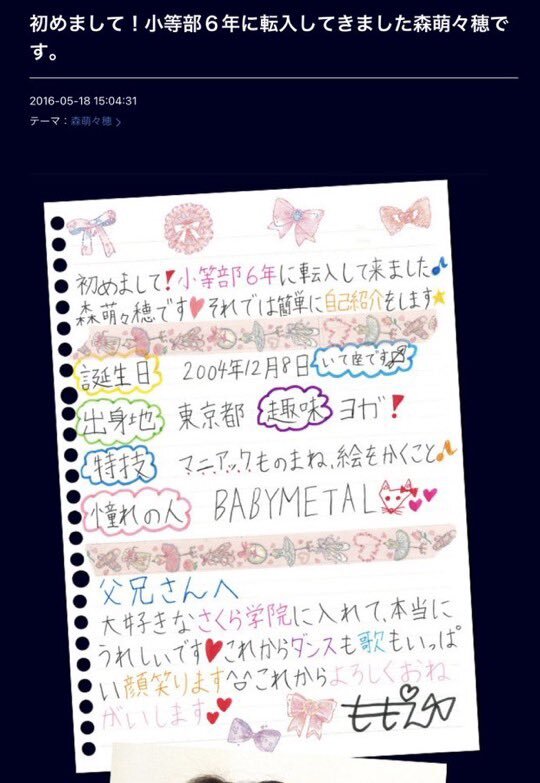 初めまして！小等部６年に転入してきました森萌々穂で
す。
2016-05-18 15:04:31
テーマ：森萌々穂 >
初めまして!小等部6年に転入して来ました♪
森萌々穂です♥それでは簡単に自己紹介をします★
誕生日 2004年12月8日 いて座です
出身地 東京都 趣味 ヨガ!
特技 マニアックものまね、絵をかくこと♪
憧れの人 BABYMETAL
父兄さんへ
大好きなさくら学院に入れて、本当に
うれしいです♥これからダンスも歌もいっぱ
い顔笑ります^^これからよろしくおね
がいします♥♥